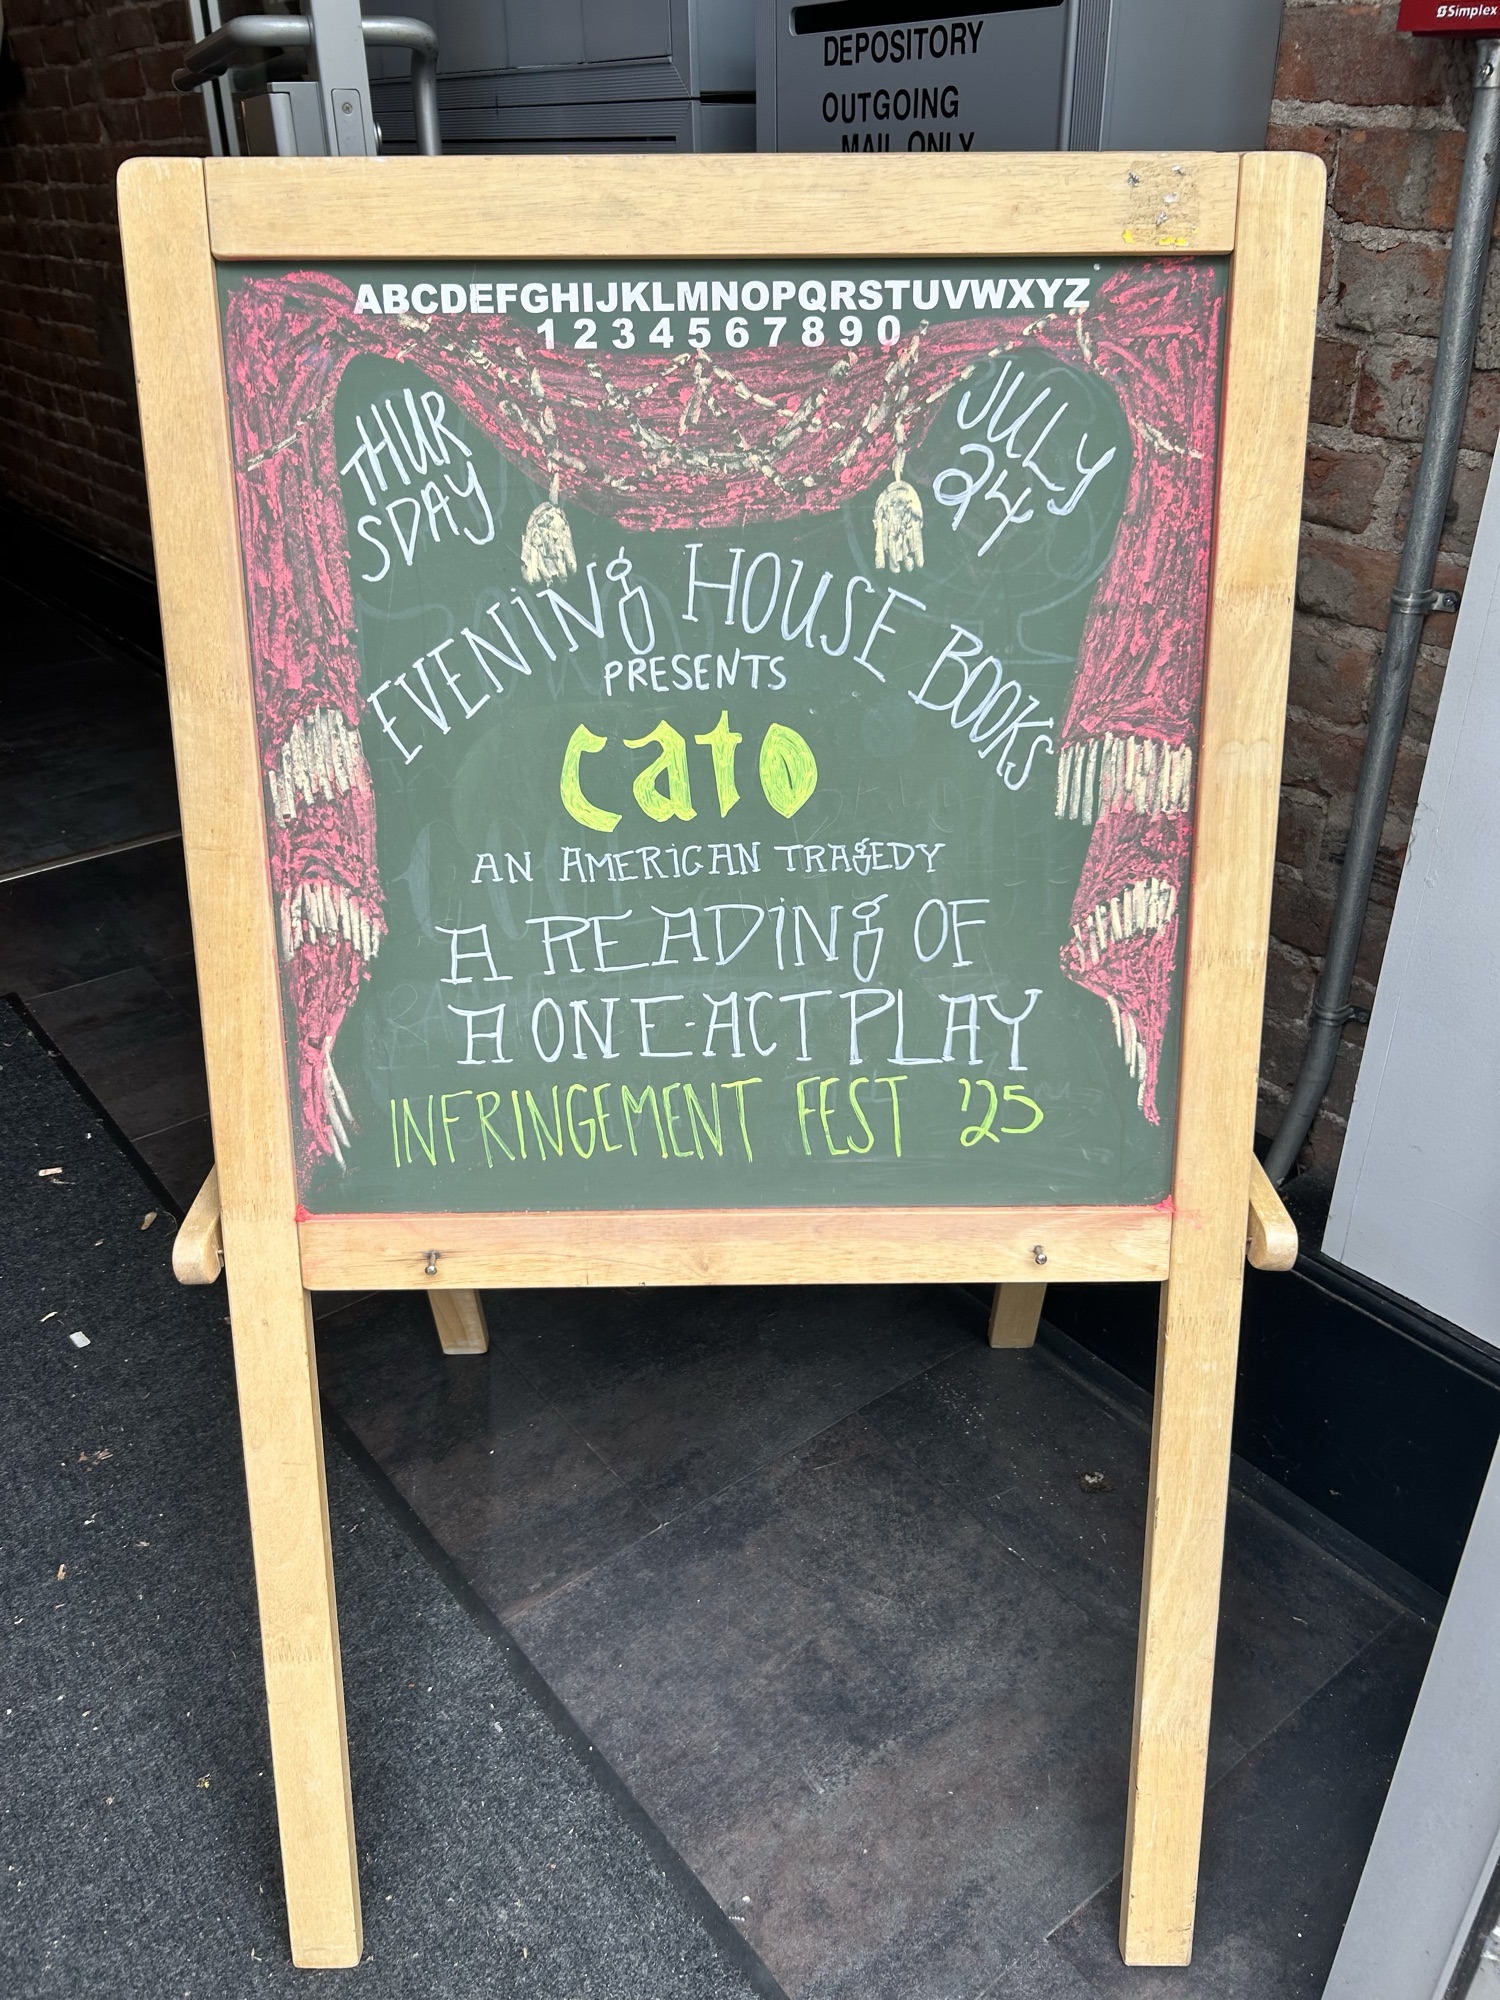 Simplex
DEPOSITORY
OUTGOING
MAIL ONLY
ABCDEFGHIJKLMNOPQRSTUVWXYZ
1 2 3 4 5 6 7 8 9 0
THUR
SDAY
JULY
24
EVENING HOUSE BOOKS
PRESENTS
cato
AN AMERICAN TRAGEDY
A READING OF
A ONE-ACT PLAY
INFRINGEMENT FEST '25